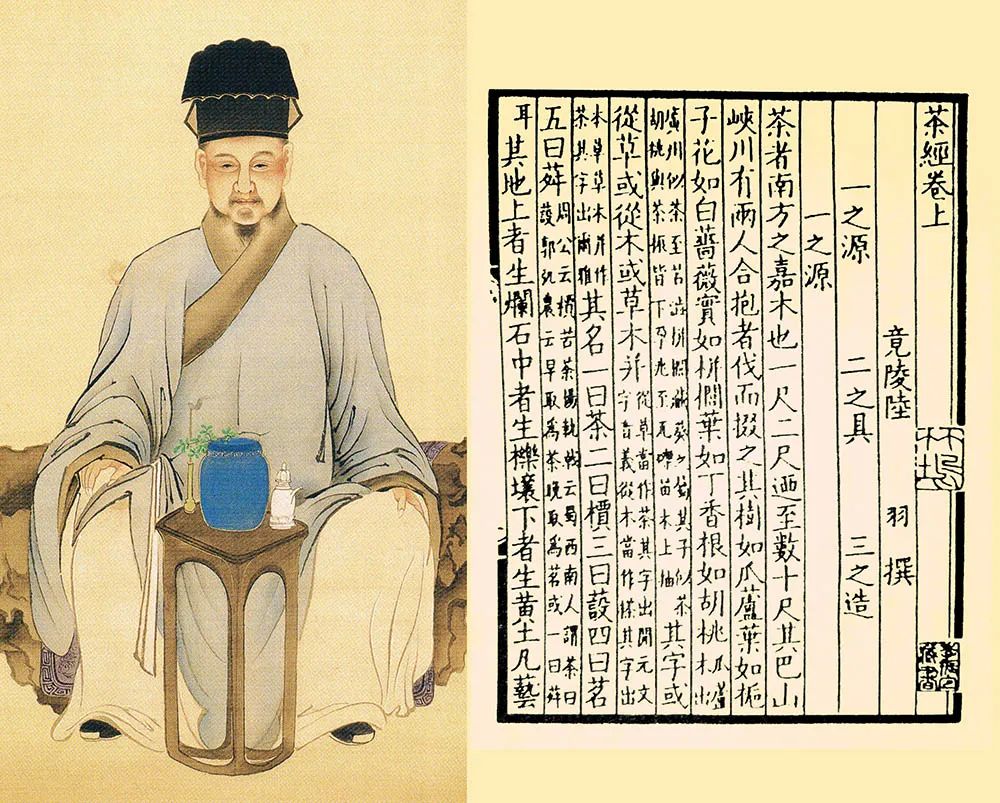 茶經卷上
竟陵陸 羽 撰
一之源 二之具 三之造
一之源
茶者南方之嘉木也一尺二尺迺至數十尺其巴山
峽川有兩人合抱者伐而掇之其樹如瓜蘆葉如梔
子花如白薔薇實如栟櫚葉如丁香根如胡桃 瓜蘆木出
廣州似茶至苦澁栟櫚蒲葵之屬其子似茶
胡桃與茶根皆下孕兆至瓦礫苗木上抽 其字或
從草或從木或草木并 從草當作茶其字出開元文
字音義從木當作搽其字出
本草草木并作
荼其字出爾雅 其名一曰茶二曰檟三曰蔎四曰茗
五曰荈 周公云檟苦荼揚執戟云蜀西南人謂茶曰
蔎郭弘農云早取爲茶晚取爲茗或一曰荈
耳其地上者生爛石中者生櫟壤下者生黃土凡藝